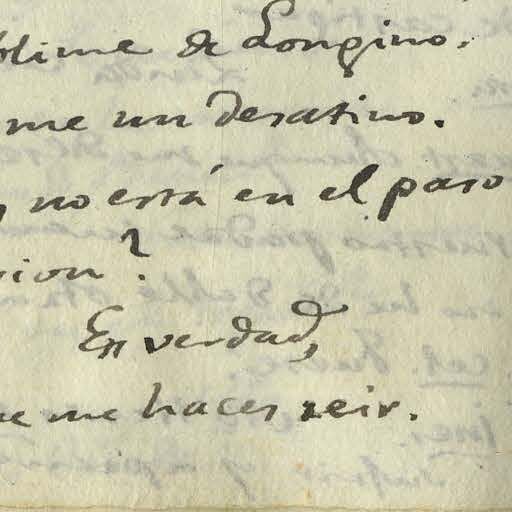 blime de Longino.
me un desatino.
no está en el paso
sion?
En verdad,
ue me haces reir.